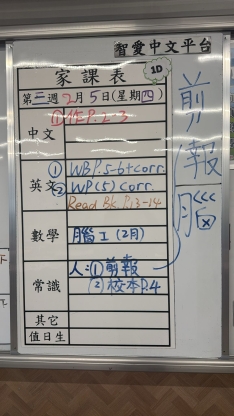 智愛中文平台
家課表 1D
第三週2月5日(星期四)
中文 ①作P.2-3
英文 ① WB P.5-6+corr.
② WP(5) corr.
Read Bk P.13-14
數學 腦工(2月)
常識 人:①剪報
② 校本P.4
其它
值日生
剪報
腦